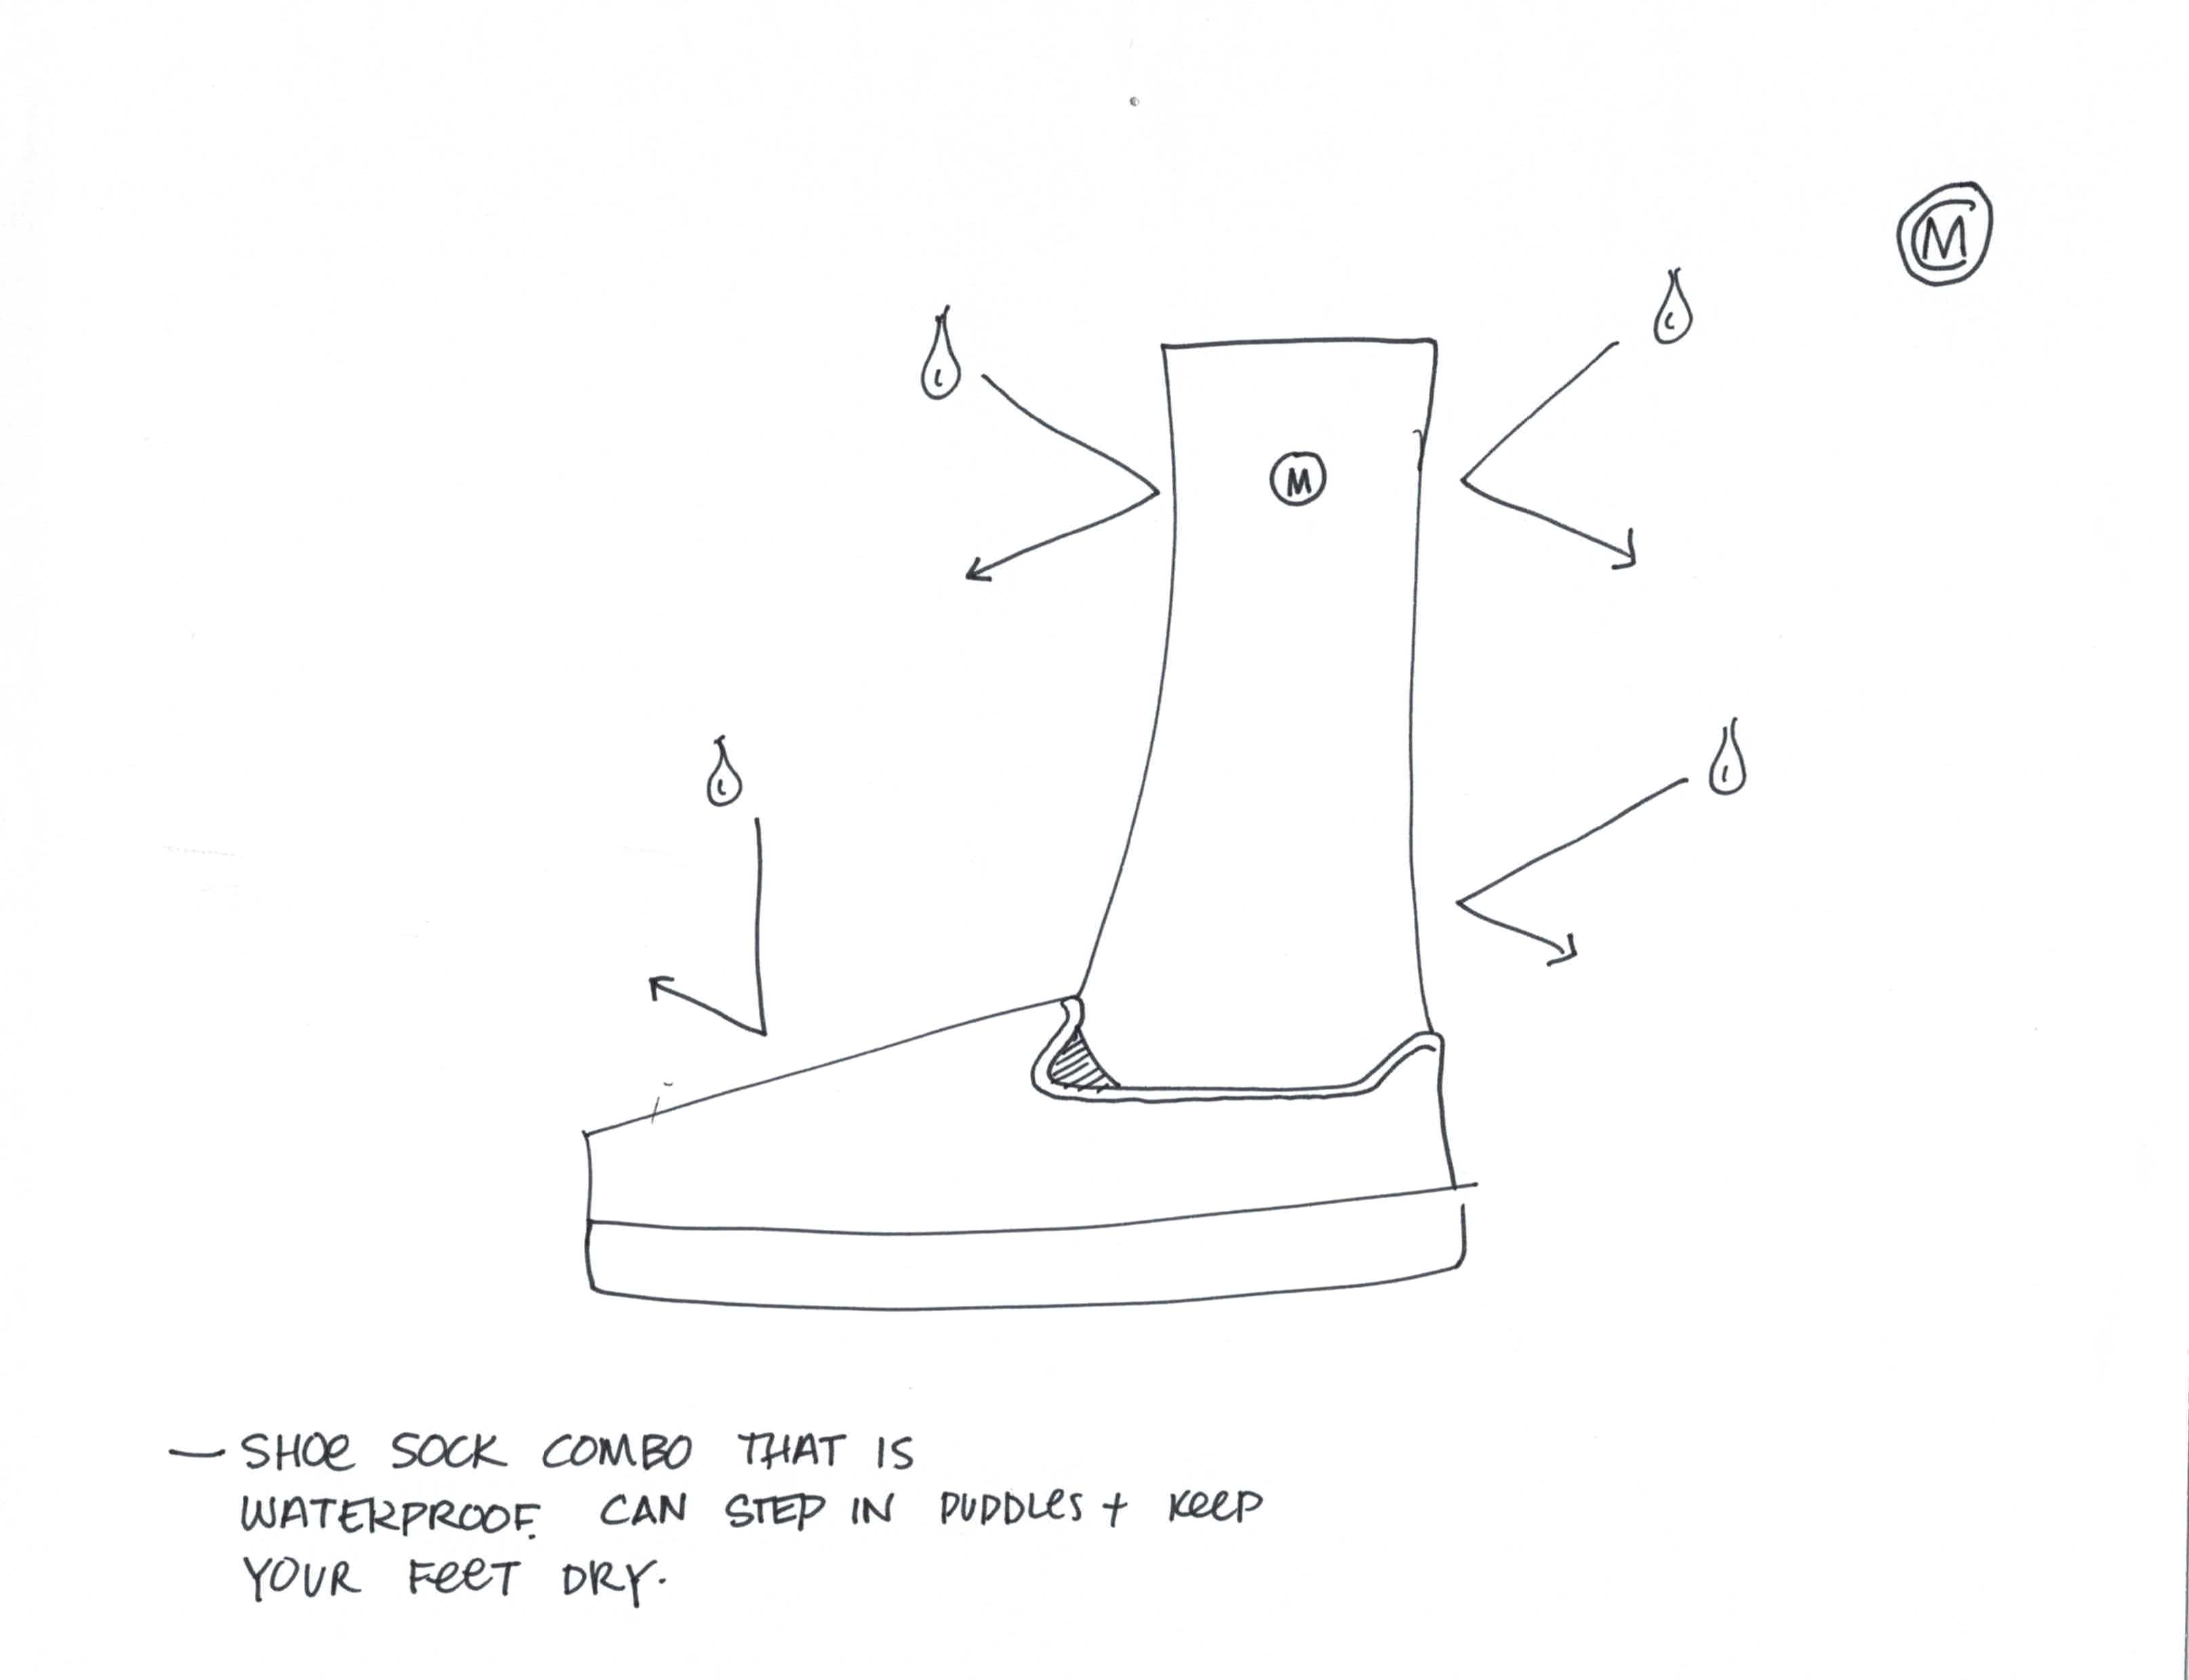 M
M
— SHOE SOCK COMBO THAT IS
WATERPROOF. CAN STEP IN PUDDLES + KEEP
YOUR FEET DRY.